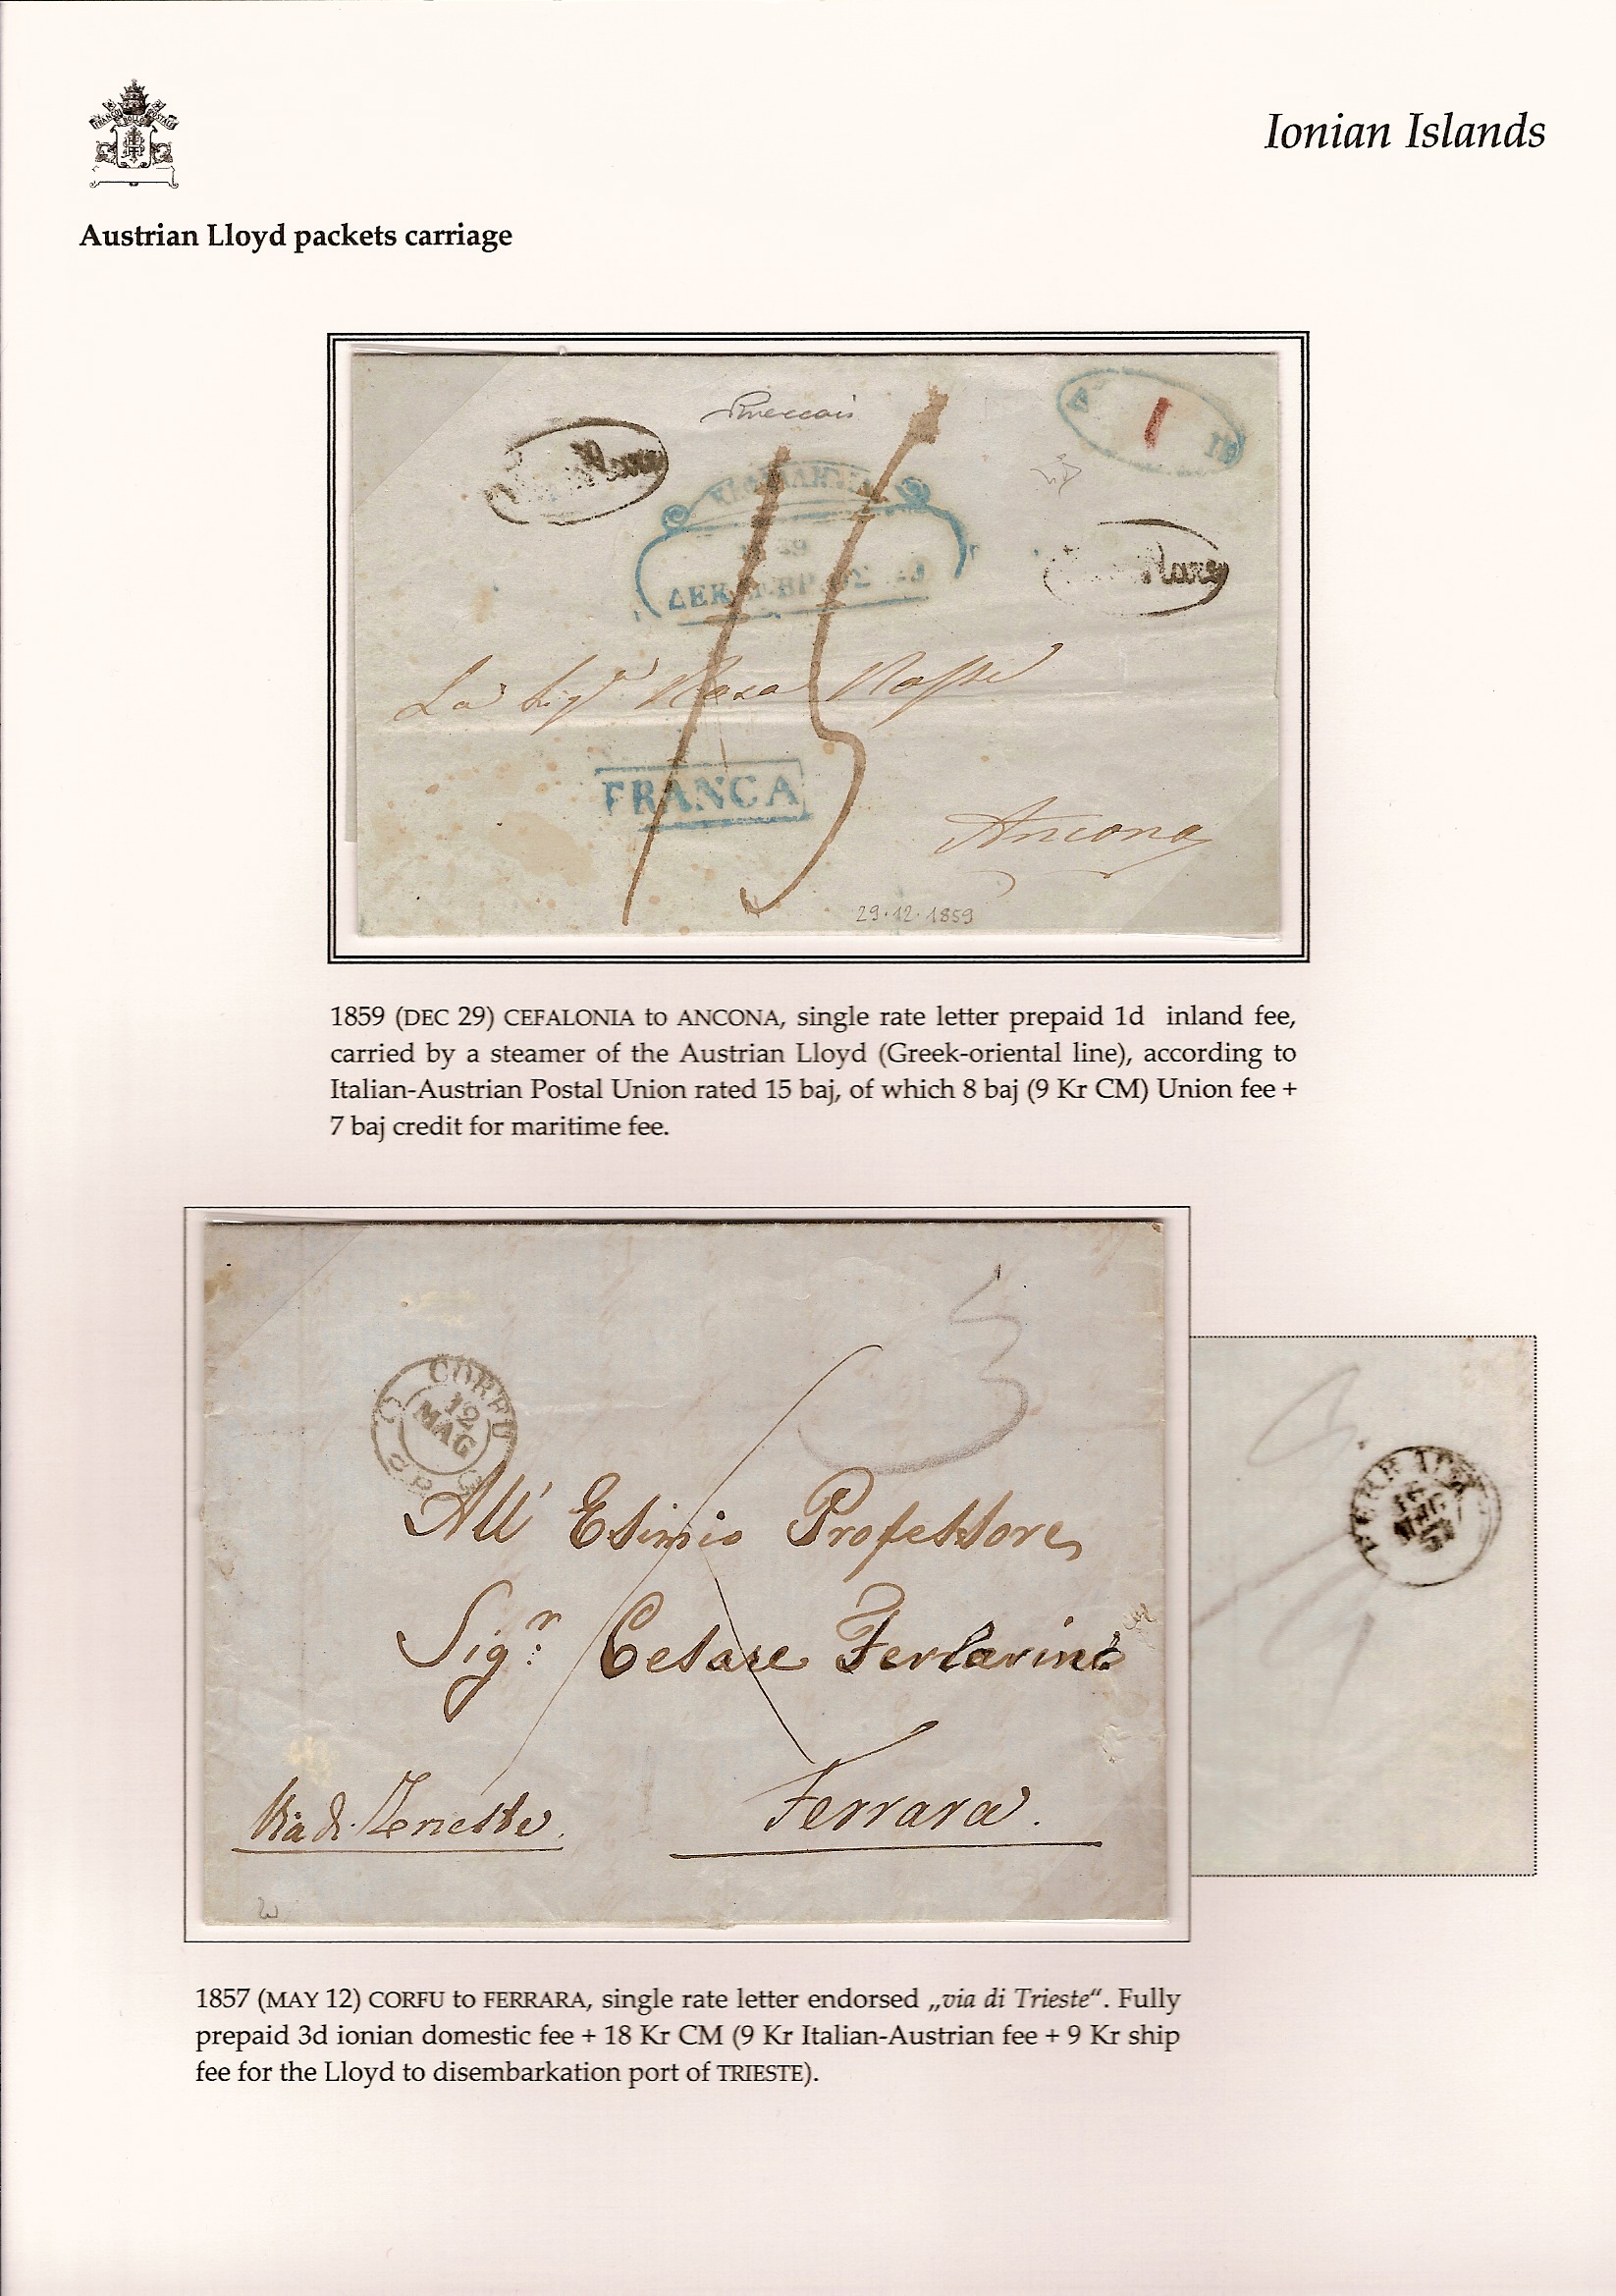 Ionian Islands
FRANCO BOLLO POSTALE
Austrian Lloyd packets carriage
1
ΔΕΚΕΜΒΡΙΟΣ
15
La Sigra Rosa
FRANCA
Ancona
29.12.1859
1859 (DEC 29) CEFALONIA to ANCONA, single rate letter prepaid 1d inland fee,
carried by a steamer of the Austrian Lloyd (Greek-oriental line), according to
Italian-Austrian Postal Union rated 15 baj, of which 8 baj (9 Kr CM) Union fee +
7 baj credit for maritime fee.
3
CORFU
12
MAG
All' Esimio Professore
Sigr: Cesare
Ferrara.
Via di Trieste.
FERRARA
1857 (MAY 12) CORFU to FERRARA, single rate letter endorsed „via di Trieste“. Fully
prepaid 3d ionian domestic fee + 18 Kr CM (9 Kr Italian-Austrian fee + 9 Kr ship
fee for the Lloyd to disembarkation port of TRIESTE).